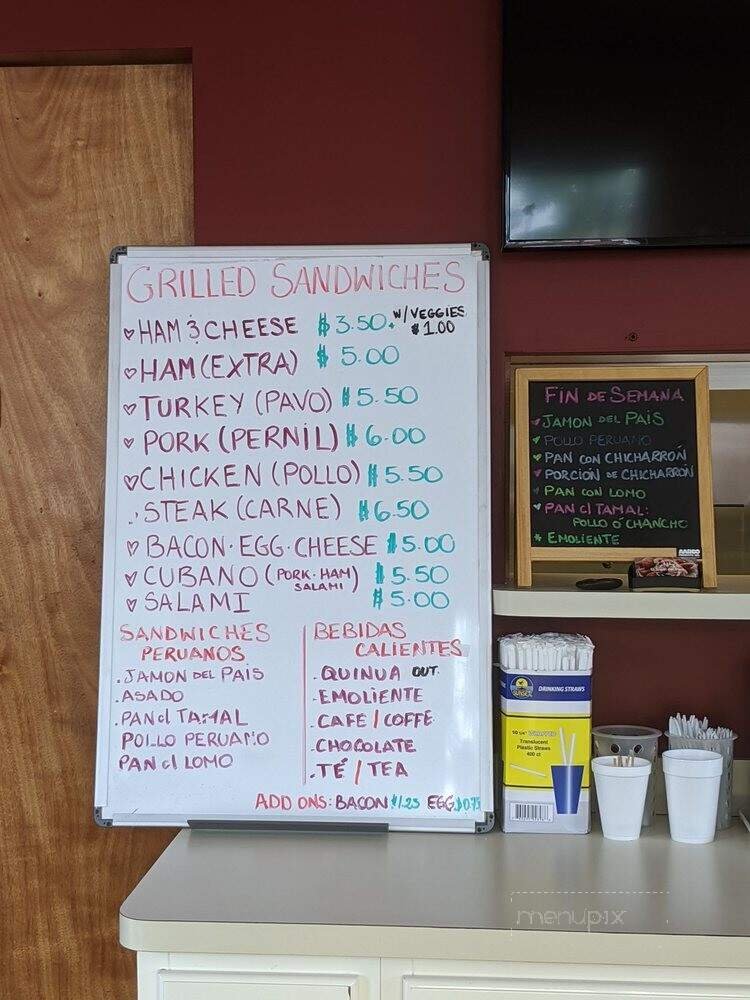 GRILLED SANDWICHES
HAM & CHEESE $3.50+ W/VEGGIES $1.00
HAM (EXTRA) $5.00
TURKEY (PAVO) $5.50
PORK (PERNIL) $6.00
CHICKEN (POLLO) $5.50
STEAK (CARNE) $6.50
BACON·EGG·CHEESE $5.00
CUBANO (PORK·HAM SALAMI) $5.50
SALAMI $5.00
SANDWICHES
PERUANOS
.JAMON DEL PAIS
.ASADO
.PAN c/ TAMAL
POLLO PERUANO
PAN c/ LOMO
BEBIDAS
CALIENTES
.QUINUA OUT
.EMOLIENTE
.CAFE / COFFE
.CHOCOLATE
.TÉ / TEA
ADD ONS: BACON $1.25 EGG $0.75
FIN DE SEMANA
JAMON DEL PAIS
POLLO PERUANO
PAN CON CHICHARRÓN
PORCIÓN DE CHICHARRÓN
PAN CON LOMO
PAN c/ TAMAL:
POLLO Ó CHANCHO
* EMOLIENTE
DRINKING STRAWS
10 1/4" WRAPPED
Translucent
Plastic Straws
400 ct
menupix